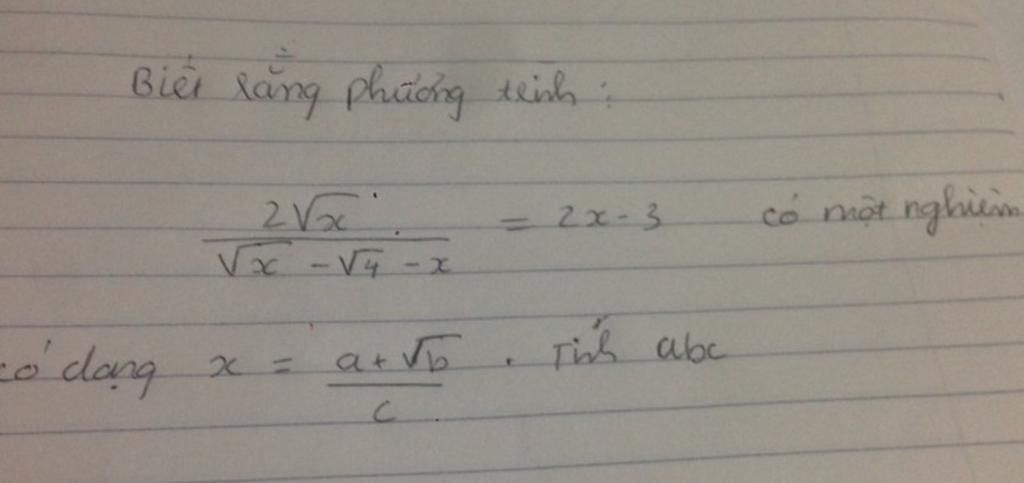 Biết rằng phương trình :
2√x / (√x - √4 - x) = 2x - 3 có một nghiệm
có dạng x = (a + √b) / c . Tính abc